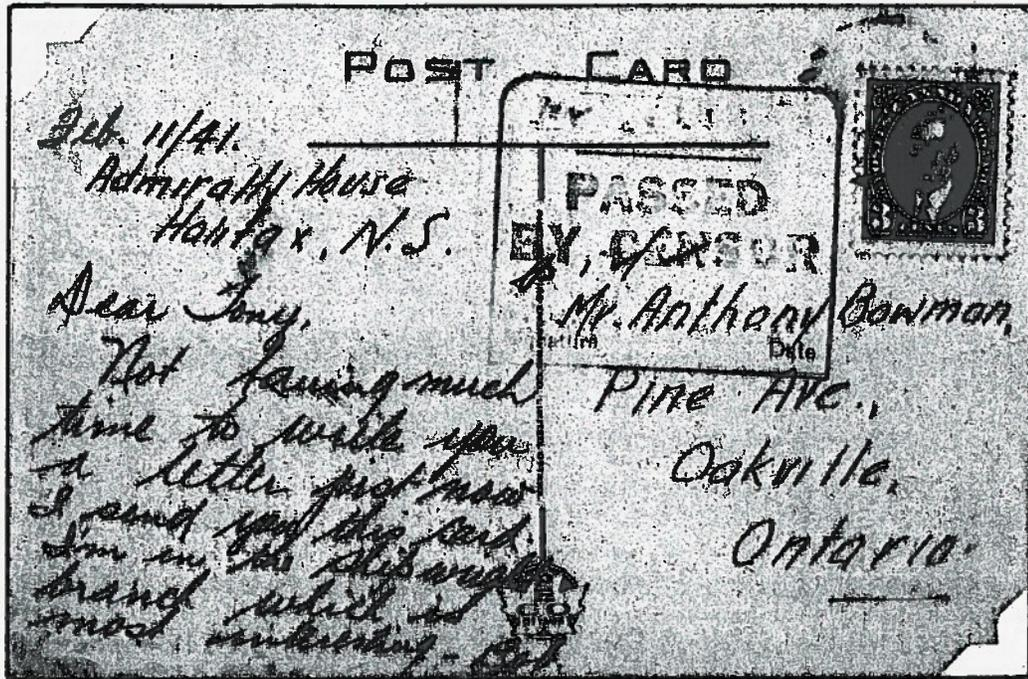 POST CARD
Feb. 11/41.
Admiralty House
Halifax, N.S.
Dear Tony,
Not having much
time to write you
a letter just now
I send you this card.
I'm in the Shipwright
branch which is
most interesting -
PASSED
BY CENSOR
Date
Mr. Anthony Bowman,
Pine Ave.,
Oakville,
Ontario.
3 3